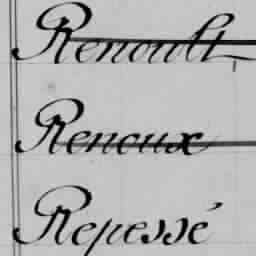 Renoult
Renoux
Repessé